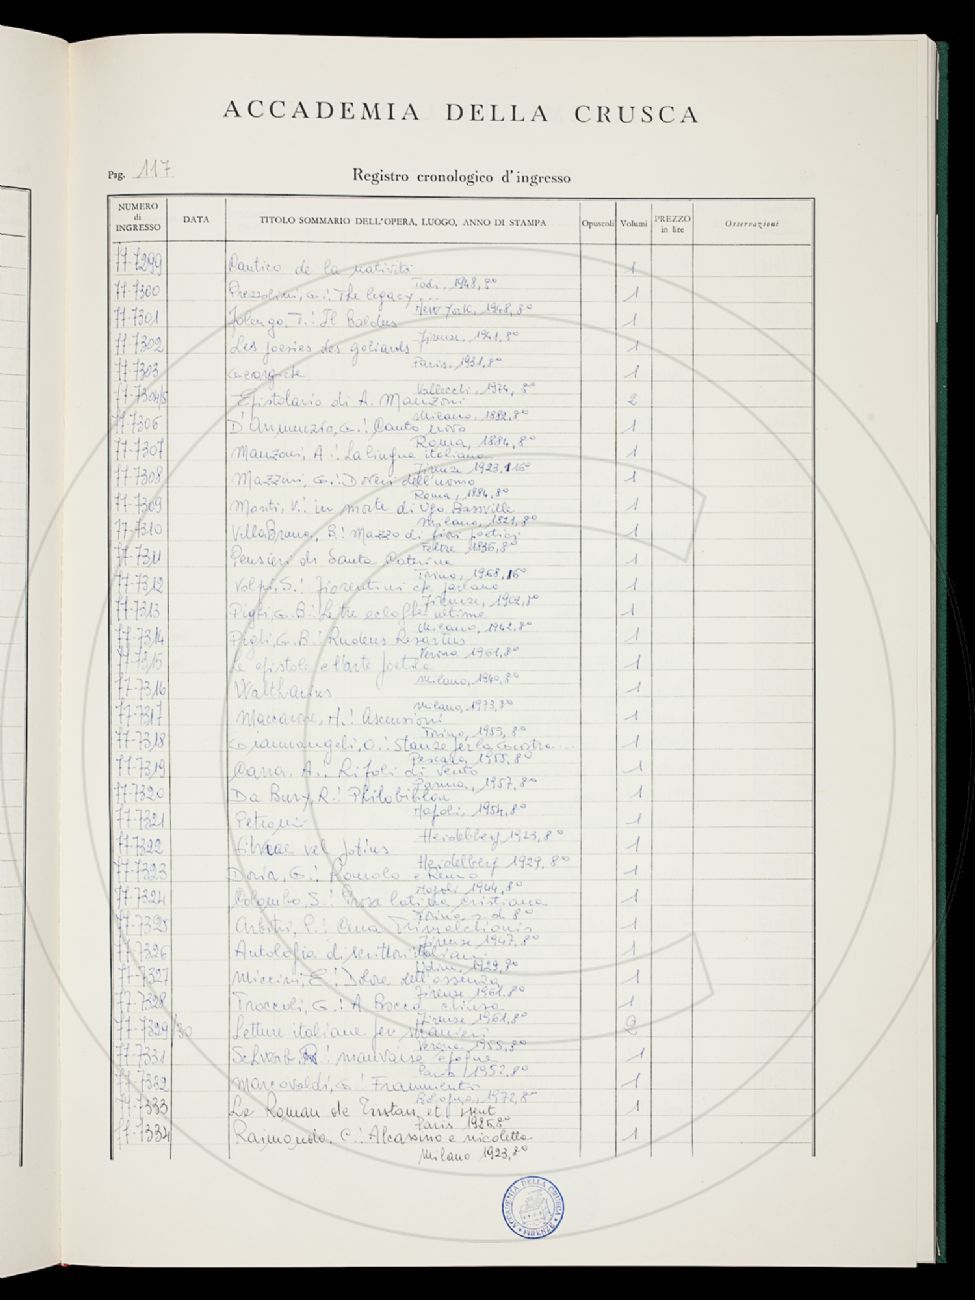 ACCADEMIA DELLA CRUSCA
Pag. 117
Registro cronologico d'ingresso
NUMERO di INGRESSO DATA TITOLO SOMMARIO DELL'OPERA, LUOGO, ANNO DI STAMPA Opuscoli Volumi PREZZO in lire Osservazioni
77-7299 Cantico de la natività 1
Todi, 1948, 8°
77-7300 Prezzolini, G.: The legacy ... 1
New York, 1948, 8°
77-7301 Folengo, T.: Il Baldus 1
Firenze, 1941, 8°
77-7302 Les poesies des goliards 1
Paris, 1931, 8°
77-7303 1
Vallecchi, 1974, 8°
77-7304/5 Epistolario di A. Manzoni 2
Milano, 1882, 8°
77-7306 D'Annunzio, G.: Canto novo 1
Roma, 1884, 8°
77-7307 Manzoni, A.: La lingua italiana 1
Firenze 1923, 16°
77-7308 Mazzini, G.: Doveri dell'uomo 1
Roma, 1884, 8°
77-7309 Monti, V.: in morte di Ugo Bassville 1
Milano, 1821, 8°
77-7310 Mazzo di fiori poetici 1
Feltre 1836, 8°
77-7311 Pensieri di Santa Caterina 1
Torino, 1968, 16°
77-7312 Volpi, S.: Fiorentini che parlano 1
Firenze, 1902, 8°
77-7313 Pighi, G.B.: Le tre ecloghe ultime 1
Milano, 1942, 8°
77-7314 Pighi, G.B.: Rudens Resartus 1
Verona 1961, 8°
77-7315 Le epistole e l'arte poetica 1
Milano, 1940, 8°
77-7316 Waltharius 1
Milano, 1973, 8°
77-7317 Maccarone, N.: Ascensioni 1
Torino, 1953, 8°
77-7318 Giannangeli, O.: Stanze per la 1
Pescara, 1955, 8°
77-7319 Carra, A.: Rifoli di vento 1
Parma, 1957, 8°
77-7320 Da Bury, R.: Philobiblon 1
Napoli, 1954, 8°
77-7321 Petronii 1
Heidelberg 1923, 8°
77-7322 Silvae vel potius 1
Heidelberg 1929, 8°
77-7323 Doria, G.: Romolo e Remo 1
Napoli 1944, 8°
77-7324 Colombo, S.: Prosa latina cristiana 1
Torino s.d. 8°
77-7325 Arbitri, P.: Cena Trimalchionis 1
Firenze 1947, 8°
77-7326 Antologia di scrittori italiani 1
Udine, 1929, 8°
77-7327 Miccini, E.: Dolore dell'assenza 1
Firenze 1961, 8°
77-7328 Troccoli, G.: A Bocca chiusa 1
Firenze 1961, 8°
77-7329/30 Letture italiane per stranieri 2
Verona 1955, 8°
77-7331 Schwob, R.: mauvaise epoque 1
Paris 1952, 8°
77-7332 Marcovaldi, G.: Frammenti 1
Bologna, 1972, 8°
77-7333 Le Roman de Tristan et Iseut 1
Paris 1926, 8°
77-7334 Raimondo, C.: Alcassino e nicoletta 1
Milano 1923, 8°
ACCADEMIA DELLA CRUSCA
FIRENZE